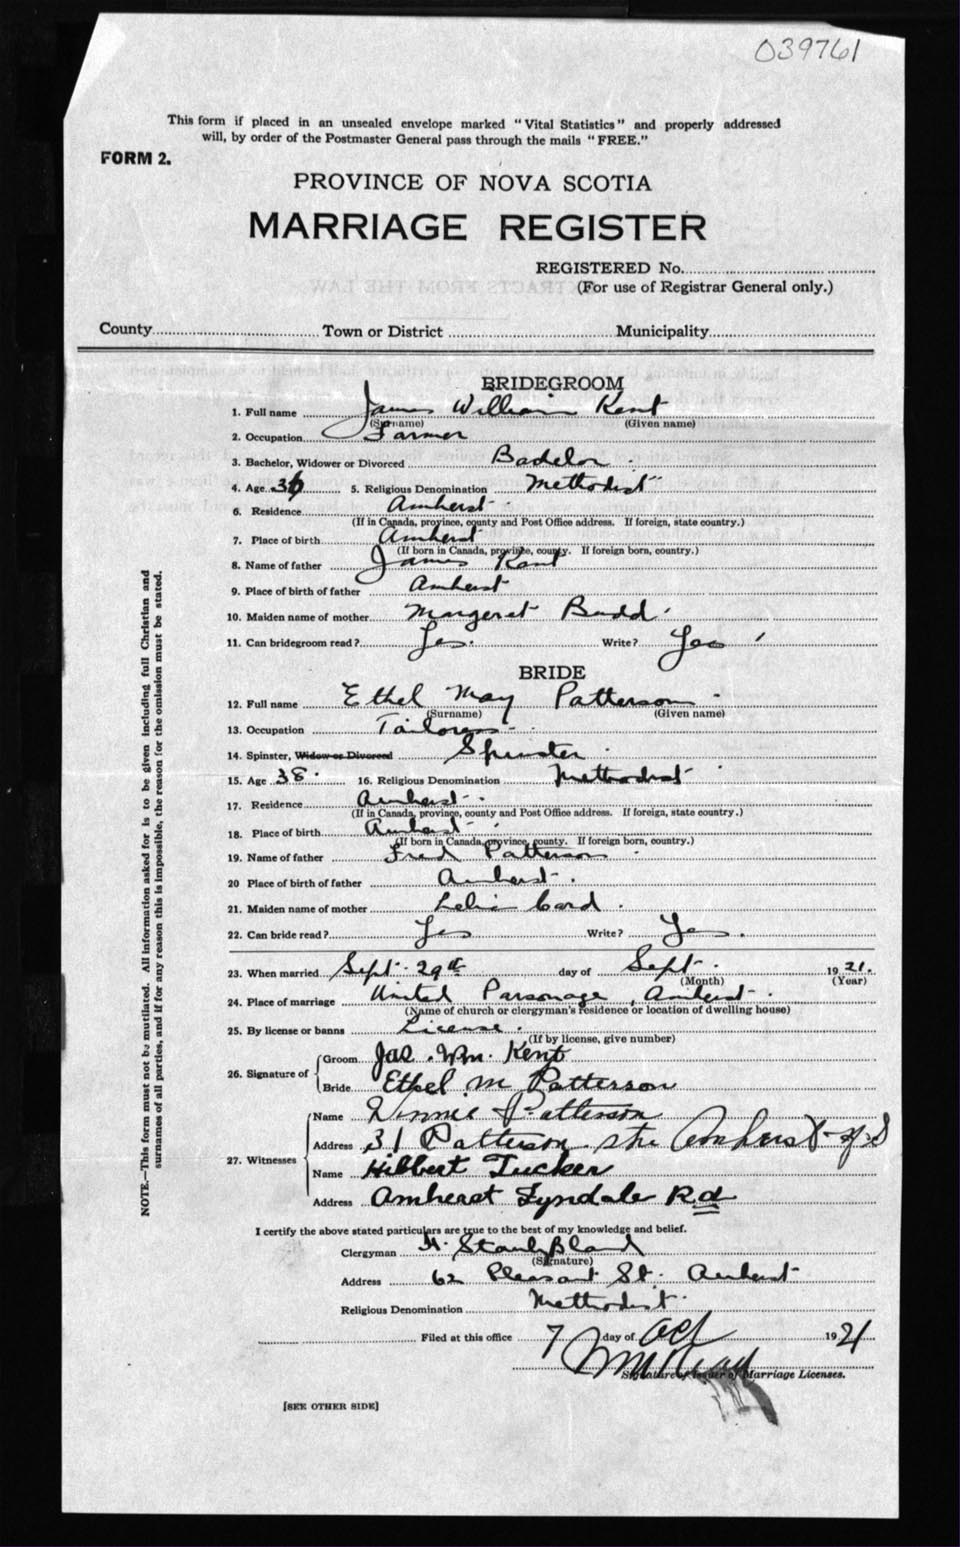 039761
This form if placed in an unsealed envelope marked "Vital Statistics" and properly addressed
will, by order of the Postmaster General pass through the mails "FREE."
FORM 2.
PROVINCE OF NOVA SCOTIA
MARRIAGE REGISTER
REGISTERED No.
(For use of Registrar General only.)
County Town or District Municipality
BRIDEGROOM
1. Full name James William Kent
(Surname) (Given name)
2. Occupation Farmer
3. Bachelor, Widower or Divorced Bachelor
4. Age 36 5. Religious Denomination Methodist
6. Residence Amherst
(If in Canada, province, county and Post Office address. If foreign, state country.)
7. Place of birth Amherst
(If born in Canada, province, county. If foreign born, country.)
8. Name of father James Kent
9. Place of birth of father Amherst
10. Maiden name of mother Margeret Budd
11. Can bridegroom read? Yes. Write? Yes
BRIDE
12. Full name Ethel May Patterson
(Surname) (Given name)
13. Occupation Tailoress
14. Spinster, Widow or Divorced Spinster
15. Age 38. 16. Religious Denomination Methodist
17. Residence Amherst.
(If in Canada, province, county and Post Office address. If foreign, state country.)
18. Place of birth Amherst
(If born in Canada, province, county. If foreign born, country.)
19. Name of father Fred Patterson
20 Place of birth of father Amherst.
21. Maiden name of mother Card.
22. Can bride read? Yes Write? Yes.
23. When married Sept. 29th day of Sept. 1921.
(Month) (Year)
24. Place of marriage United Parsonage, Amherst.
(Name of church or clergyman's residence or location of dwelling house)
25. By license or banns License.
(If by license, give number)
26. Signature of Groom Jas. Wm. Kent
Bride Ethel M Patterson
27. Witnesses Name Winnie Patterson
Address 31 Patterson Amherst N.S
Name Hilbert Tucker
Address Amherst Tyndale Rd
I certify the above stated particulars are true to the best of my knowledge and belief.
Clergyman H. Stanly Bland
(Signature)
Address 62 Pleasant St. Amherst
Religious Denomination Methodist.
Filed at this office 7 day of Oct 1921
Signature of Issuer of Marriage Licenses.
[SEE OTHER SIDE]
NOTE.—This form must not be mutilated. All information asked for is to be given including full Christian and
surnames of all parties, and if for any reason this is impossible, the reason for the omission must be stated.